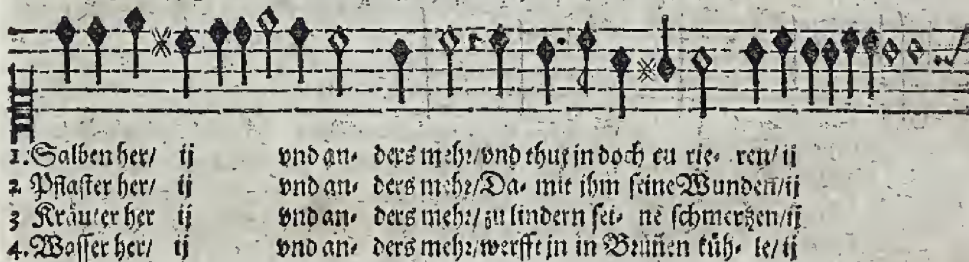 1. Salben her/ ij vnd an- ders mehr/vnd thut in doch cu rie- ren/ij
2 Pflaster her/ ij vnd an- ders mehr/Da- mit ihm seine Wunden/ij
3 Kräuter her ij vnd an- ders mehr/zu lindern sei- ne schmertzen/ij
4. Wasser her/ ij vnd an- ders mehr/werfft in in Brunnen küh- le/ij